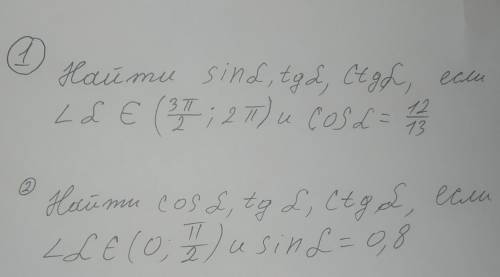 1
Найти sinα, tgα, Ctgα, если
∠α ∈ (3π/2; 2π) и cosα = 12/13
2
Найти cosα, tg α, Ctg α, если
∠α ∈ (0; π/2) и sinα = 0,8